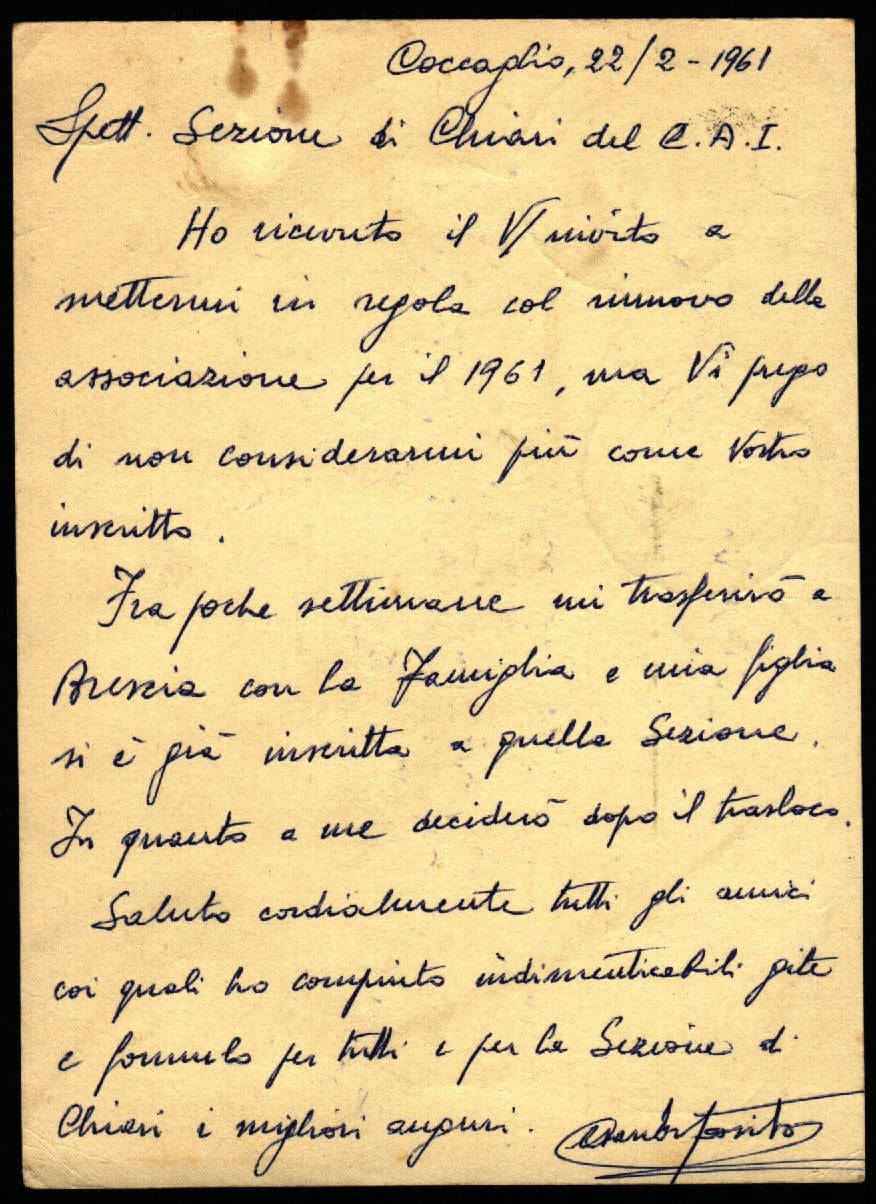 Coccaglio, 22/2-1961
Spett. Sezione di Chiari del C.A.I.
Ho ricevuto il V/ invito a
mettermi in regola col rinnovo della
associazione per il 1961, ma Vi prego
di non considerarmi più come Vostro
inscritto.
Fra poche settimane mi trasferirò a
Brescia con la Famiglia e mia figlia
si è già inscritta a quella Sezione.
In quanto a me deciderò dopo il trasloco.
Saluto cordialmente tutti gli amici
coi quali ho compiuto indimenticabili gite
e formulo per tutti e per la Sezione di
Chiari i migliori auguri.